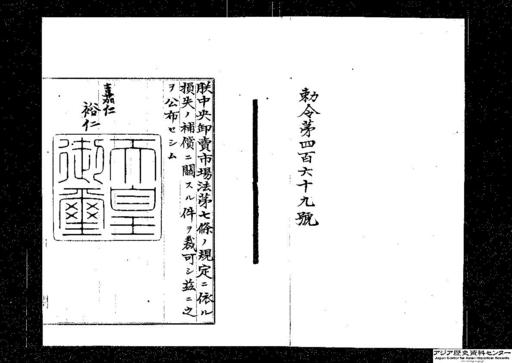 勅令第四百六十九號
朕中央卸賣市場法第七條ノ規定ニ依ル
損失ノ補償ニ關スル件ヲ裁可シ茲ニ之
ヲ公布セシム
嘉仁
裕仁
天皇
御璽
アジア歴史資料センター
Japan Center for Asian Historical Records